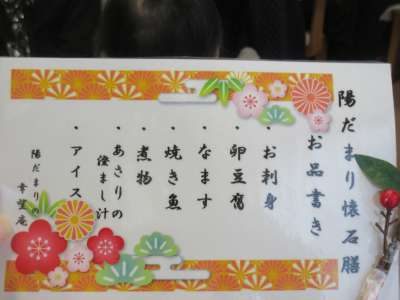 陽だまり懐石膳
お品書き
・お刺身
・卵豆腐
・なます
・焼き魚
・煮物
・あさりの
澄まし汁
・アイス
陽だまりの